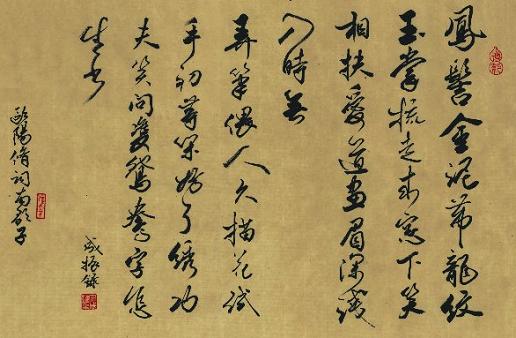 鳳髻金泥帶龍紋
玉掌梳走來窓下笑
相扶愛道畫眉深淺
入時無
弄筆偎人久描花試
手初等閑妨了繡功
夫笑問雙鴛鴦字怎
生書
歐陽修詞南歌子
振錄